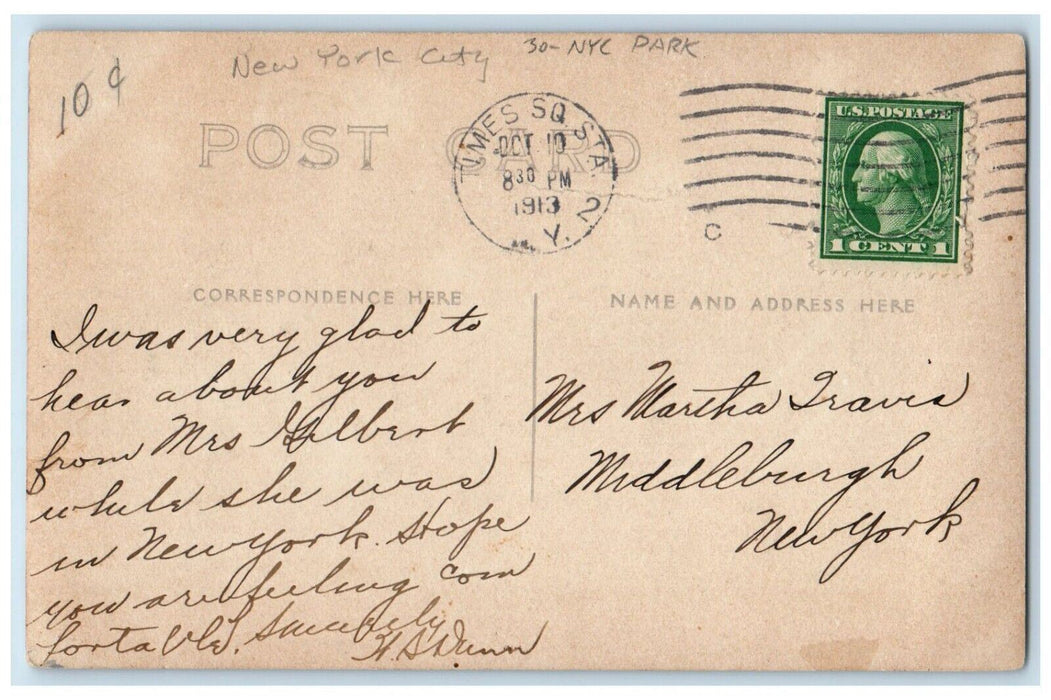 New York City 30-NYC PARK
10¢
POST CARD
TIMES SQ. STA.
OCT 10
8 30 PM
1913
N. Y. 2
C
U.S. POSTAGE
1 CENT 1
CORRESPONDENCE HERE
NAME AND ADDRESS HERE
I was very glad to
hear about you
from Mrs Gilbert
while she was
in New York. Hope
you are feeling com
fortable. Sincerely
Dunn
Mrs Martha Travis
Middleburgh
New York